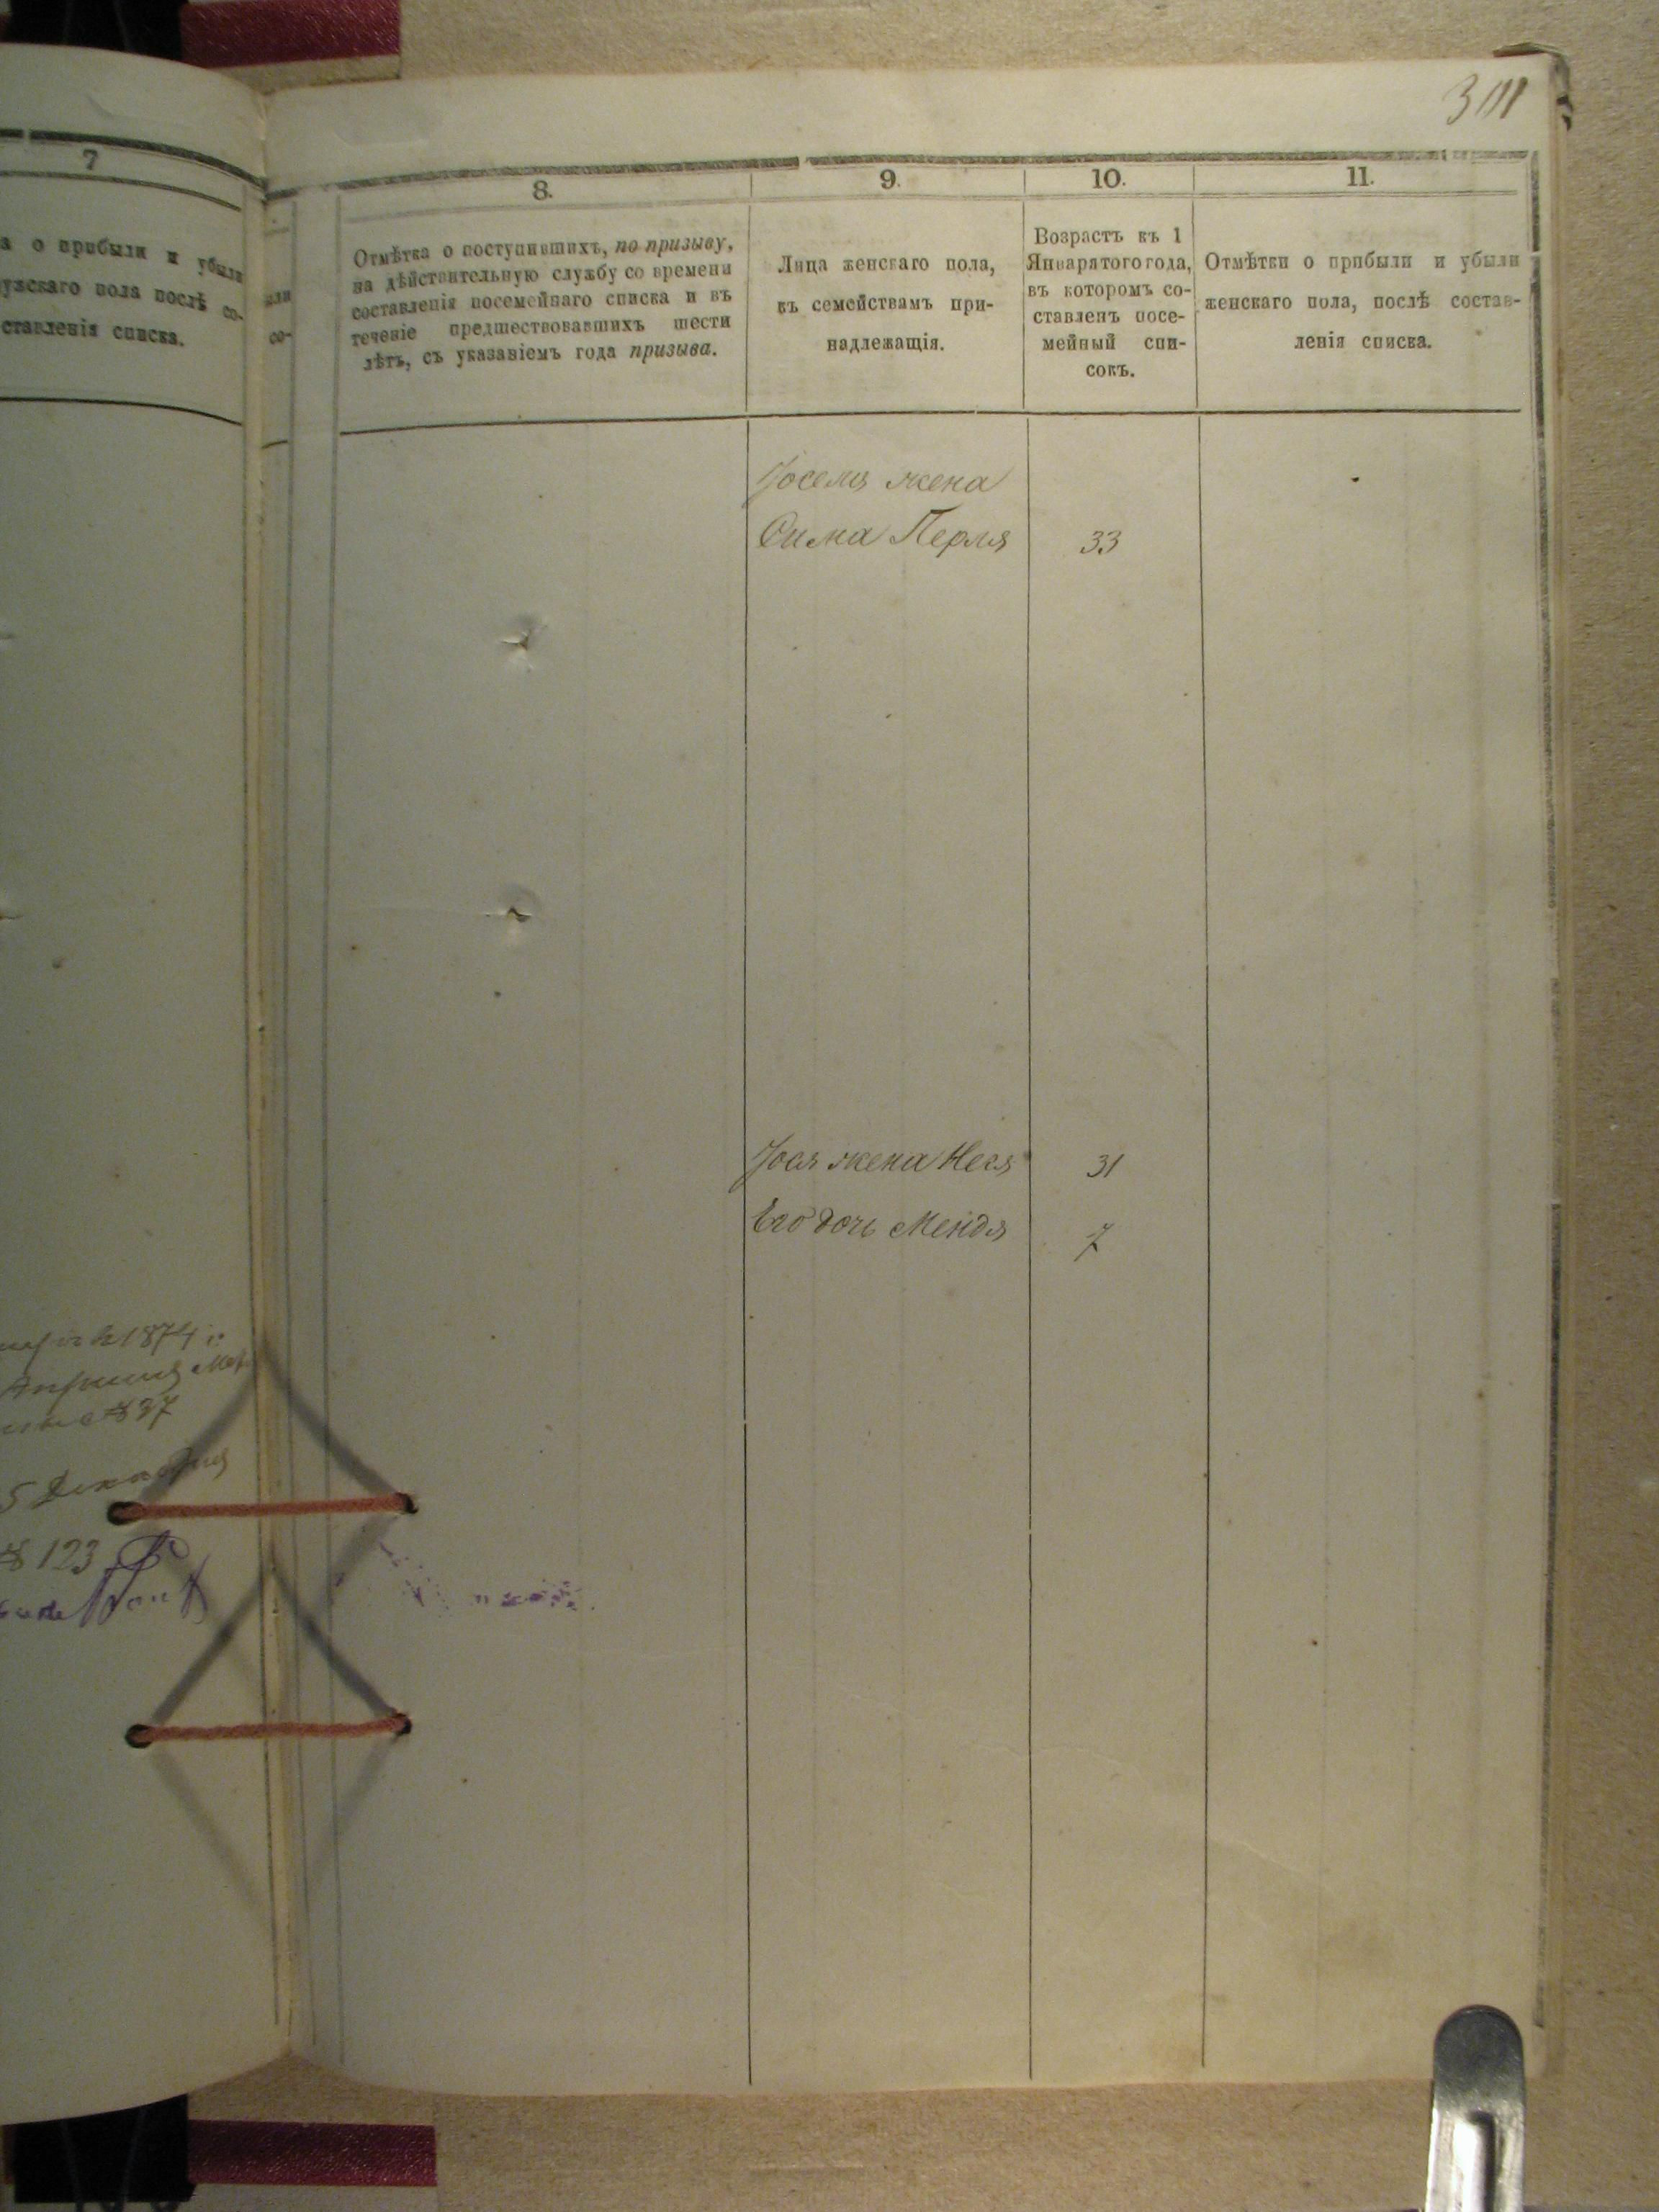 7
о прибыли и убыли
ужскаго пола послѣ со-
ставленія списка.
1874 г.
37
5 Декабря
№ 123
или
со-
3111
8.
Отмѣтка о поступившихъ, по призыву,
на дѣйствительную службу со времени
составленія посемейнаго списка и въ
теченіе предшествовавшихъ шести
лѣтъ, съ указаніемъ года призыва.
9.
Лица женскаго пола,
къ семействамъ при-
надлежащія.
10.
Возрастъ къ 1
Января того года,
въ которомъ со-
ставленъ посе-
мейный спи-
сокъ.
11.
Отмѣтки о прибыли и убыли
женскаго пола, послѣ состав-
ленія списка.
Іоселя жена
Сима Перля 33
Іося жена Нехя 31
Его дочь Мендя 7